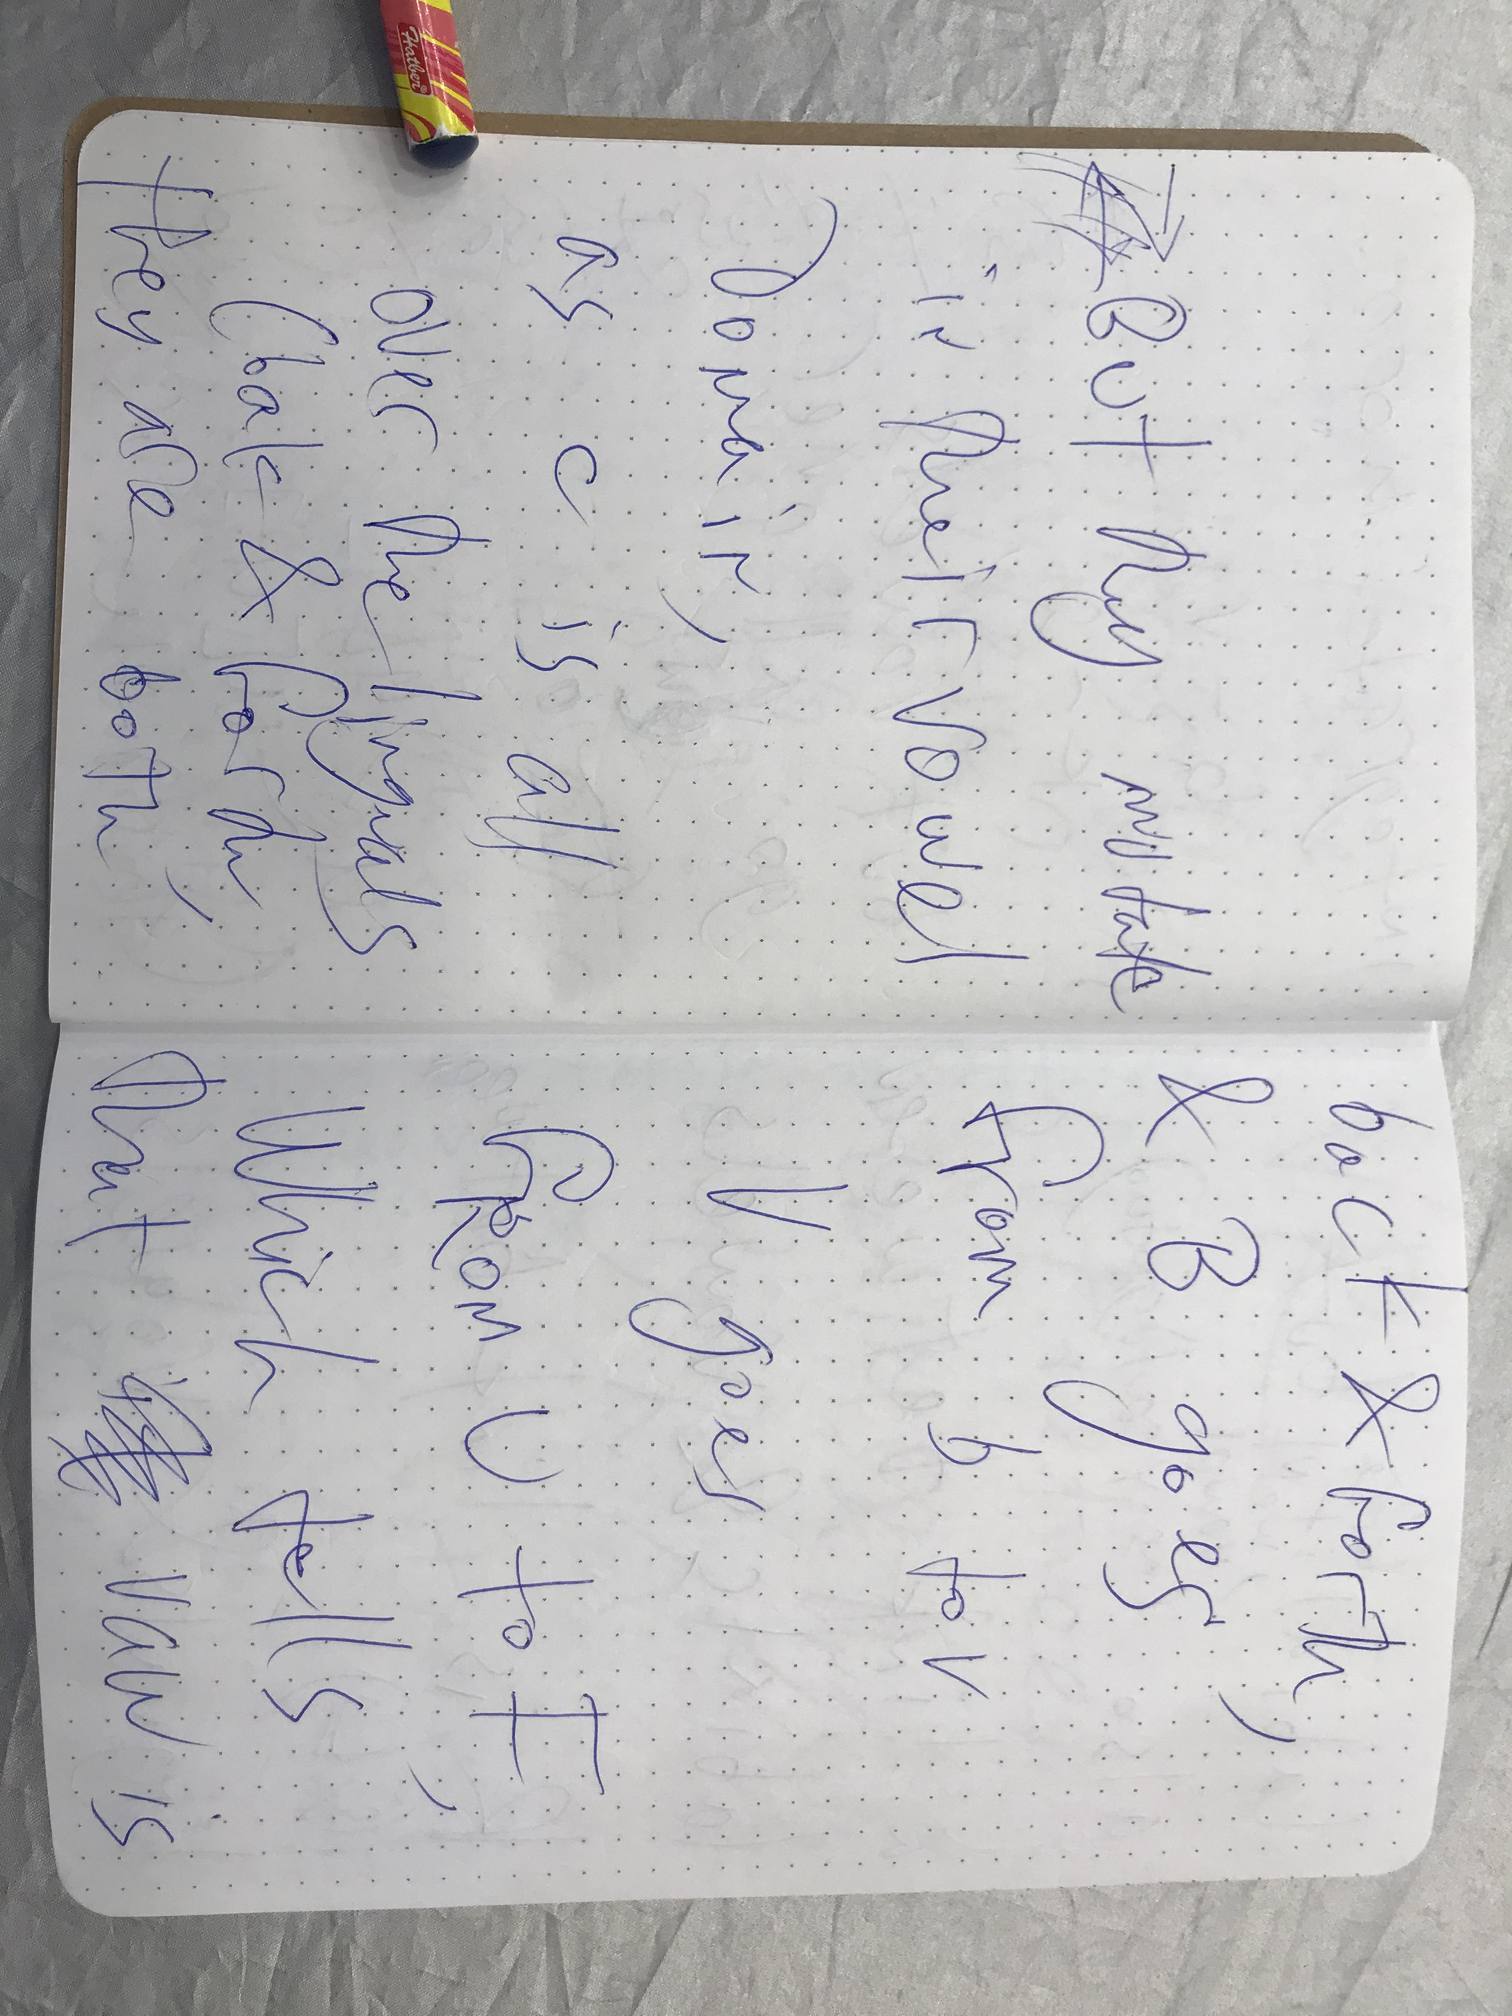 But they mutate
in their vowel
Domain,
as c is all
over the linguals
(bak & forth,
they are both,
back & forth,
& B goes
from b to v
V goes
from U to I,
Which tells
that vaw is
Hatber